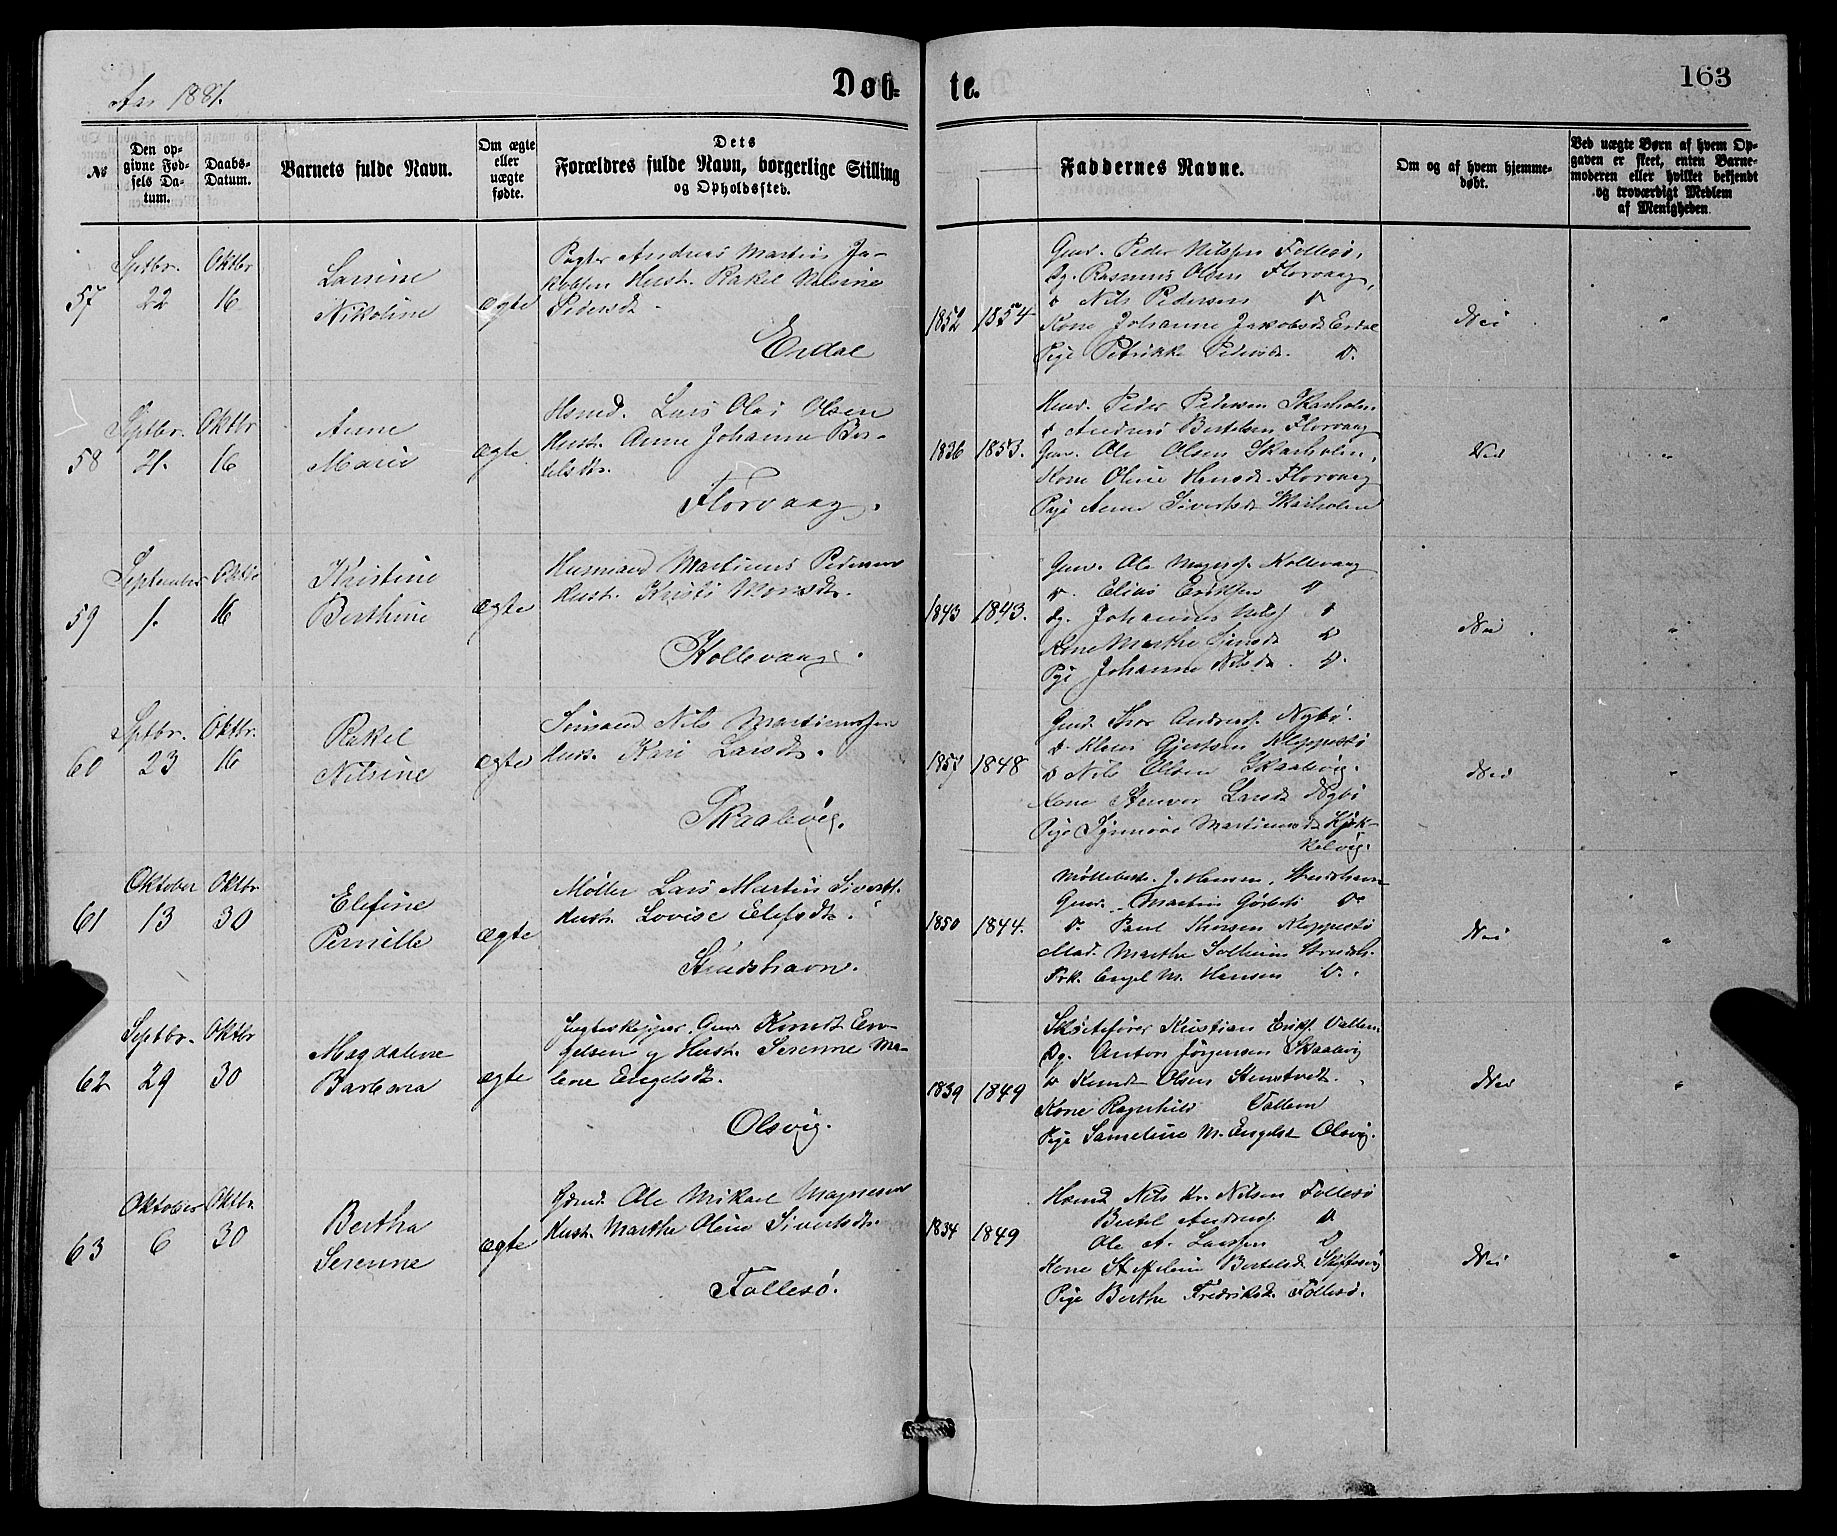 Aar 1881.
Døb-
te.
163
№
Den op-
givne Fød-
sels Da-
tum.
Daabs-
Datum.
Barnets fulde Navn.
Om ægte
eller
uægte
fødte.
Dets
Forældres fulde Navn, borgerlige Stilling
og Opholdssted.
Faddernes Navne.
Om og af hvem hjemme-
døbt.
Ved uægte Børn af hvem Op-
gaven er skeet, enten Barne-
moderen eller hvilket bekjendt
og troværdigt Medlem
af Menigheden.
57
Septbr.
22
Oktbr
16
Larine
Nikoline
ægte
Andreas Martin Ja-
kobsen Hust. Rakel Nilsine
Pedersdt
Erdal
1852 1854
Gmd. Peder Nilsen Follesø,
Rasmus Olsen Florvaag,
Nils Pedersen
Kone Johanne Jakobsdt Erdal
Pige Petrikke Pedersdt.
Nei
58
Septbr.
21.
Oktbr
16
Anne
Marie
ægte
Hsmd. Lars Olai Olsen
Hust. Anne Johanne Ber-
telsdtr.
Florvaag.
1836 1853.
Peder Pedersen Skarholm
Andreas Bertelsen Florvaag
Gmd. Ole Olsen Skarholm,
Kone Oline Hansdt Florvaag
Pige Anne Sivertsdt Skarholm
Nei
59
September
1.
Oktbr
16
Kristine
Berthine
ægte
Husmand Martinus Pedersen
Hust. Kristi Monsdt.
Kollevaag.
1843 1843.
Gmd. Ole Kollevaag
Elias Eriksen
Johannes Nils
Kone Marthe
Pige Johanne Nilsdt.
Nei
60
Septbr.
23
Oktbr.
16
Rakel
Nilsine
ægte
Nils Martinussen
Hust. Kari Larsdt.
Skaalevig.
1848
Gmd. Thor Andreas. Nybø.
Klaus Gjertsen Kleppestø
Nils Olsen Skaalevig.
Kone Larsdt Nybø
Pige Synnøve Martinusdt Kjøk-
kelvig.
Nei
61
Oktober
13
Oktbr
30
Elefine
Pernille
ægte
Møller Lars Martin Sivert.
Hust. Lovise Elefsdt.
Strudshavn.
1850 1844.
J. Hansen, Strudshavn
Gmd. Martin
Paul Thorsen Kleppestø
Mad. Marthe Solheim Strudsh.
Frk. Engel M. Hansen
Nei
62
Septbr.
29
Oktbr
30
Magdalene
Barbara
ægte
Jægteskipper, Knudt En-
gelsen og Hust. Serenne Ma-
lene Engelsdt.
Olsvig.
1839 1849
Skøitefører Kristian Eriks. Vallem
Anton Jørgensen Skaalevig
Knudt Olsen
Kone Ragnhild Vallem
Pige Sameline M. Engelsdt Olsvig.
Nei
63
Oktober
6
Oktbr
30
Bertha
Serenne
ægte
Ole Mikael Magnesen
Hust. Marthe Oline Sivertsdt.
Follesø.
1834 1849
Hsmd Nils Kr. Nilsen Follesø
Bertel Anders.
Ole A. Larsen
Kone Bertelsdt
Pige Berthe Fredriksdt Follesø.
Nei